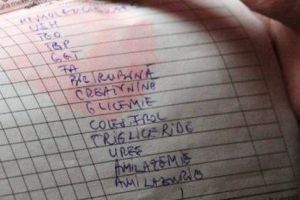 VSH
TGO
TGP
GGT
FA
BILIRUBINA
CREATININA
GLICEMIE
COLESTROL
TRIGLICERIDE
UREE
AMILAZEMIE
AMILAZURIE